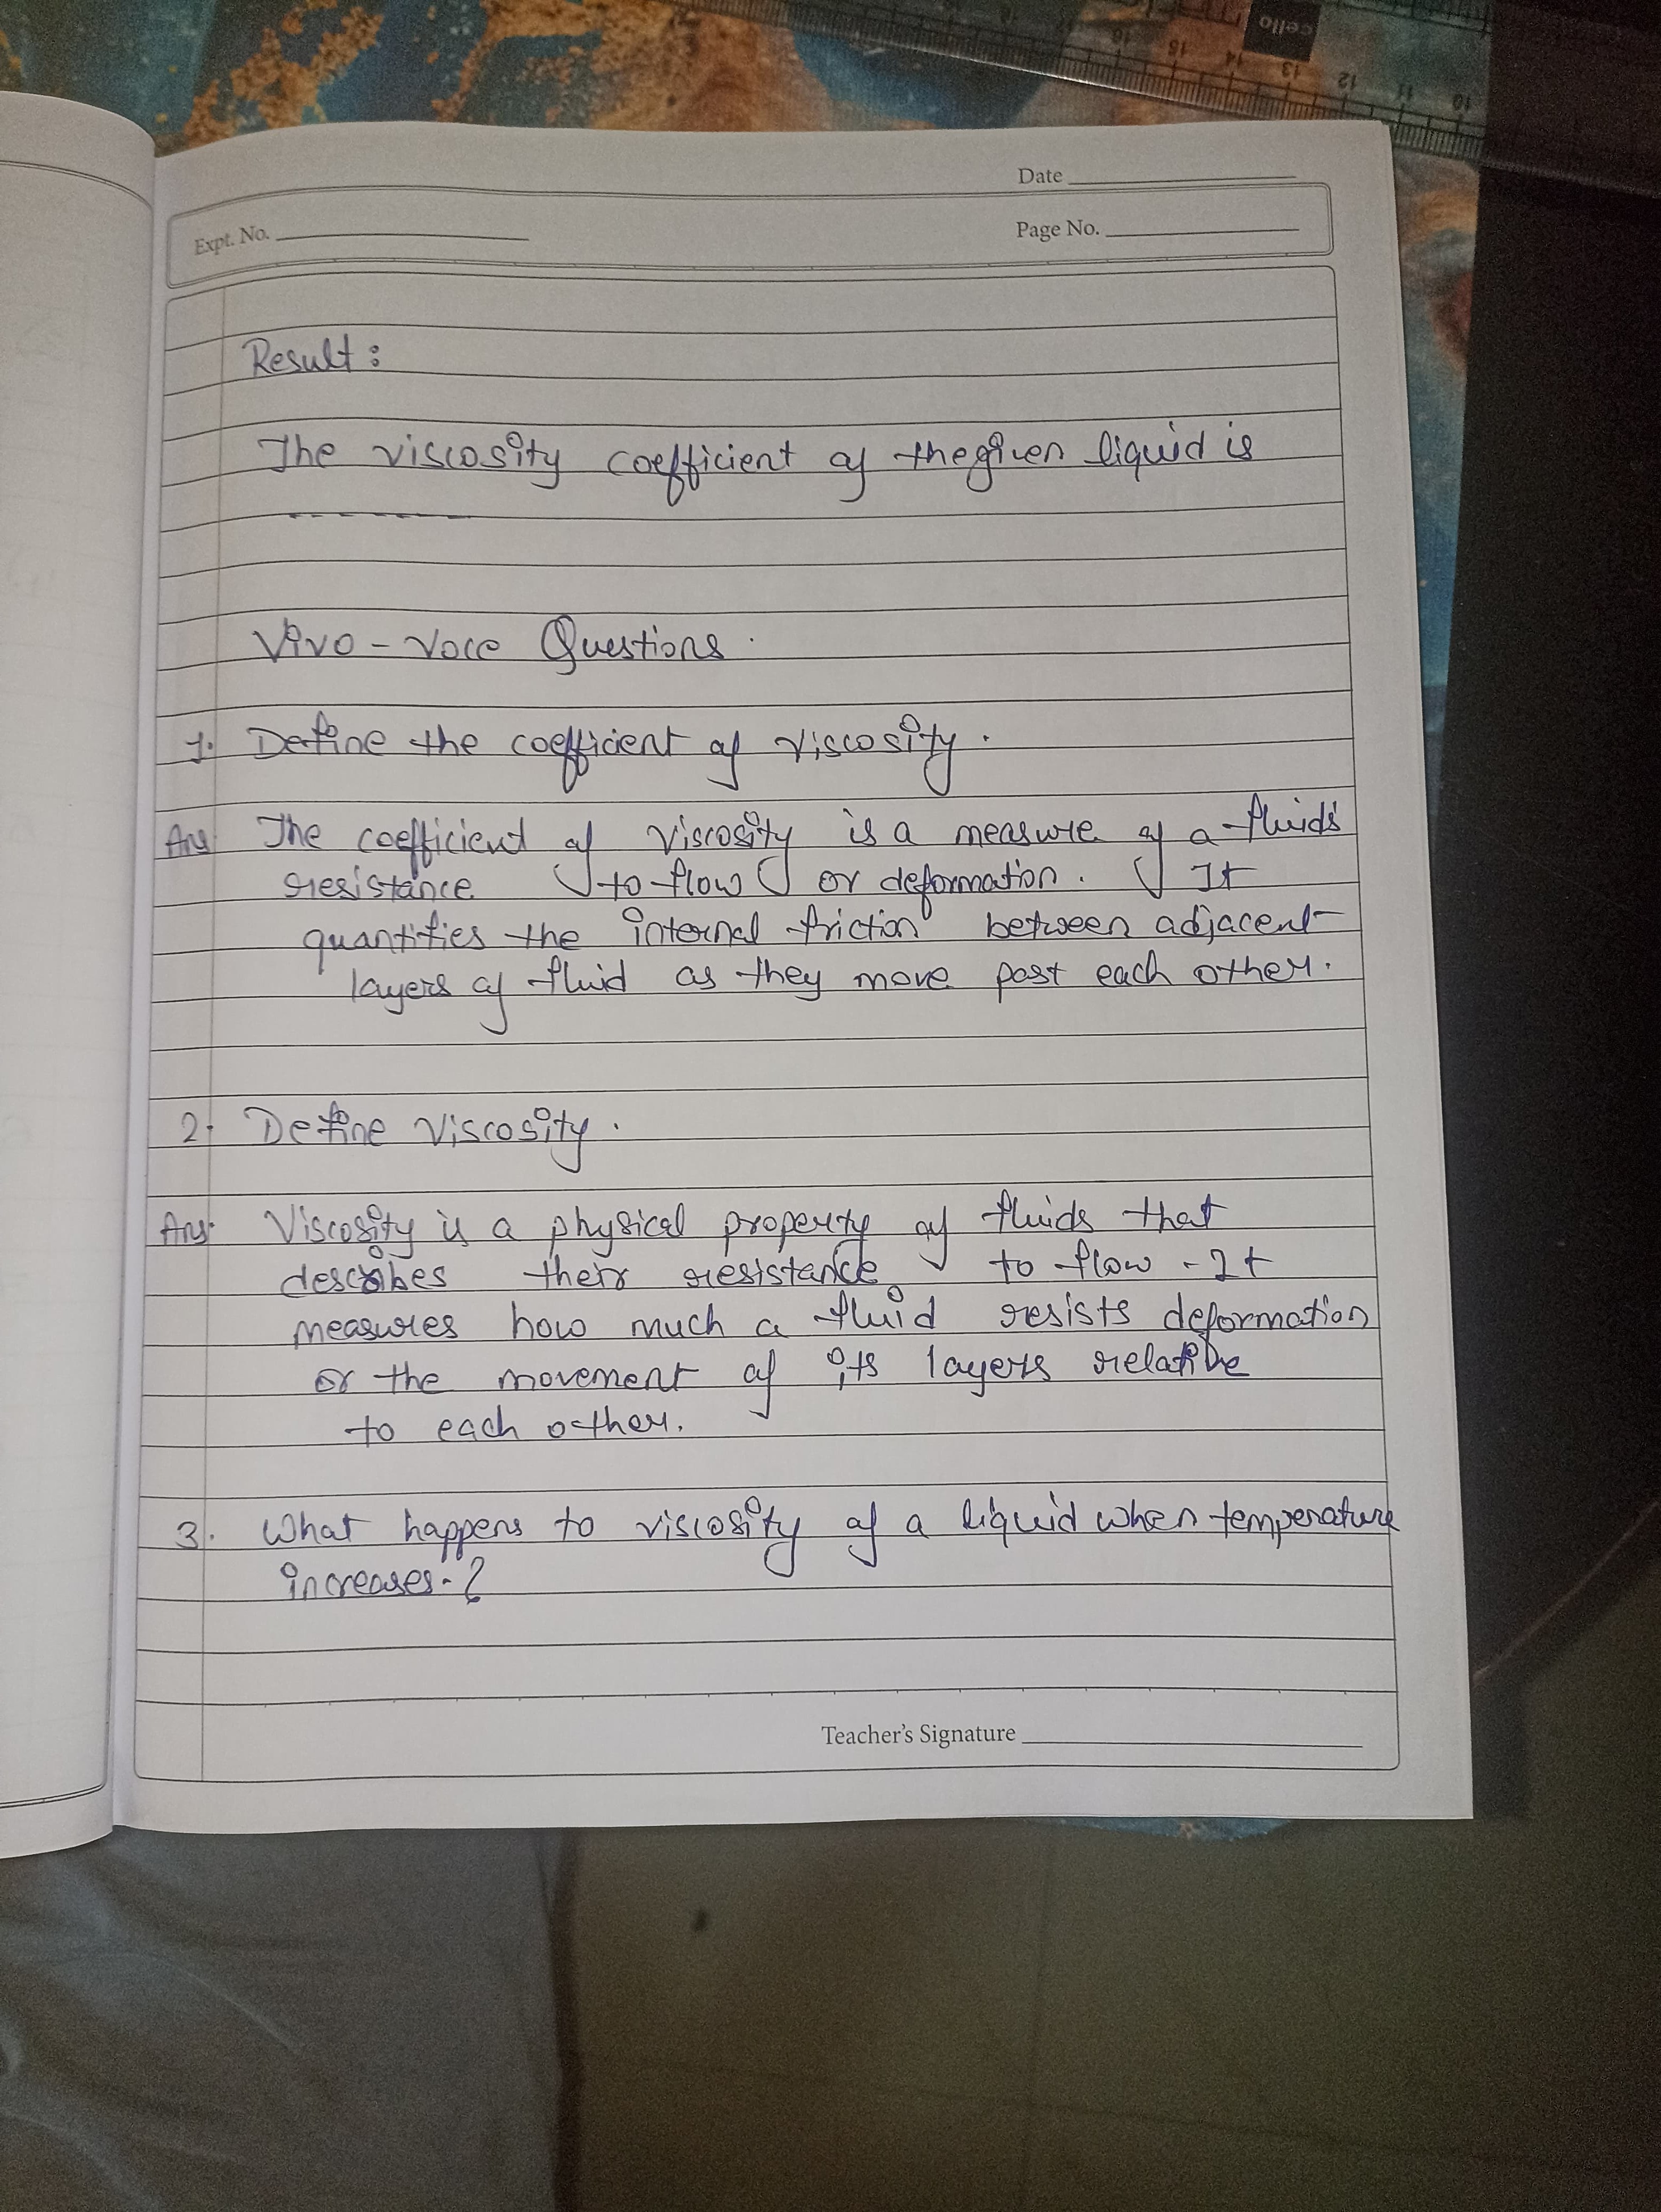 cello
16 15 14 13 12 11 10
Date
Expt. No.
Page No.
Result :
The viscosity coefficient of the given liquid is
- - - - - - -
Vivo - Voce Questions.
1. Define the coefficient of viscosity.
Ans The coefficient of viscosity is a measure of a fluids'
resistance to flow or deformation. It
quantifies the internal friction between adjacent
layers of fluid as they move past each other.
2. Define viscosity.
Ans. Viscosity is a physical property of fluids that
describes their resistance to flow - It
measures how much a fluid resists deformation
or the movement of its layers relative
to each other.
3. What happens to viscosity of a liquid when temperature
increases-?
Teacher's Signature